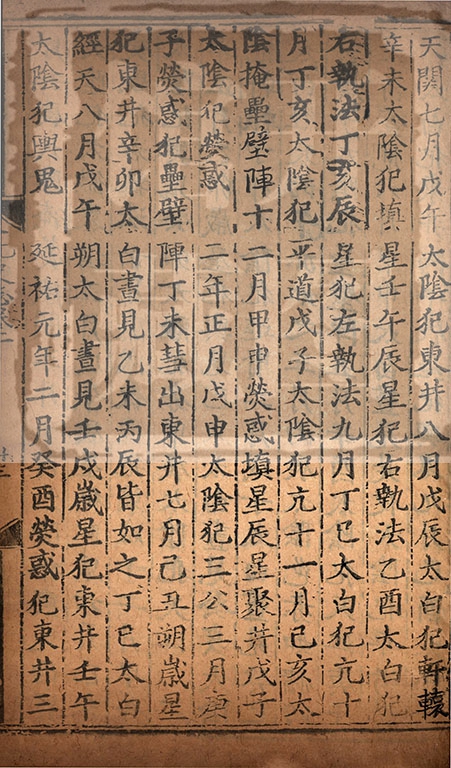 天關七月戊午太陰犯東井八月戊辰太白犯軒轅
辛未太陰犯填星壬午辰星犯右執法乙酉太白犯
右執法丁亥辰星犯左執法九月丁巳太白犯亢十
月丁亥太陰犯平道戊子太陰犯亢十一月己亥太
陰掩壘壁陣十二月甲申熒惑填星辰星聚井戊子
太陰犯熒惑 二年正月戊申太陰犯三公三月庚
子熒惑犯壘壁陣丁未彗出東井七月己丑朔歲星
犯東井辛卯太白晝見乙未丙辰皆如之丁巳太白
經天八月戊午朔太白晝見壬戌歲星犯東井壬午
太陰犯輿鬼 延祐元年二月癸酉熒惑犯東井三